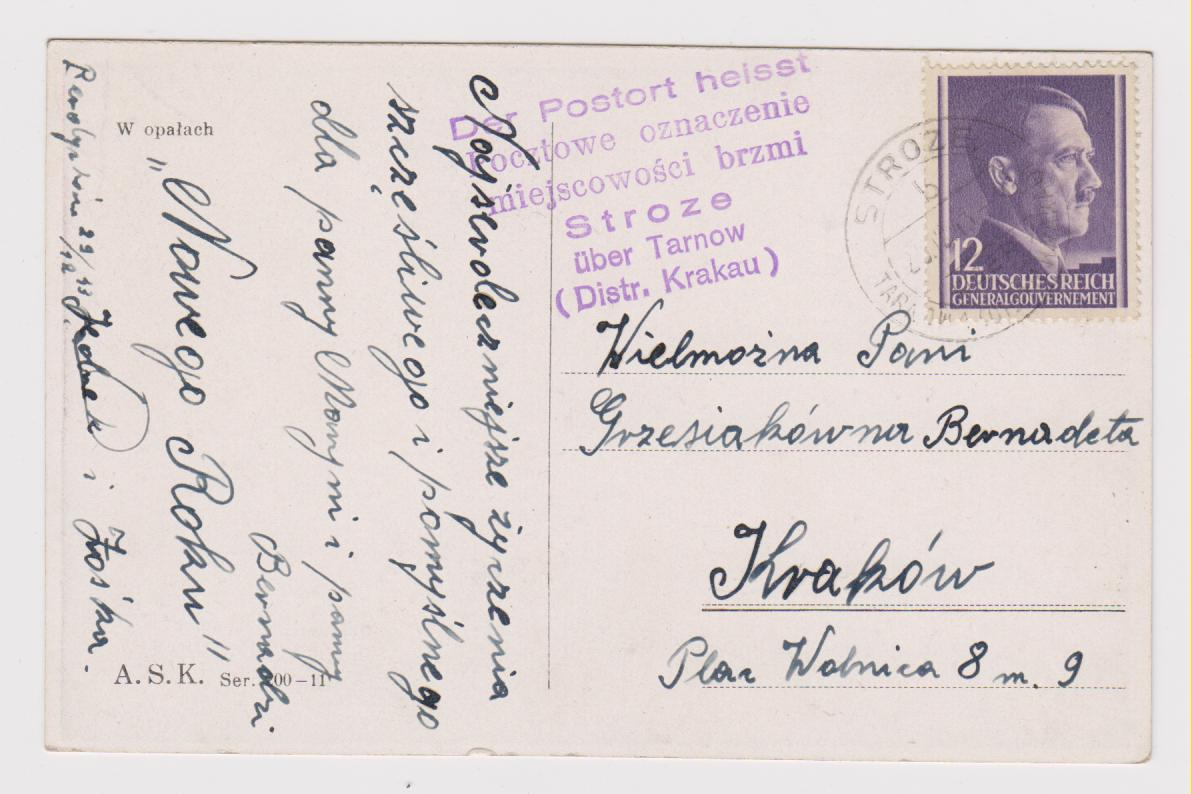 W opałach
Najserdeczniejsze życzenia
szczęśliwego i pomyślnego
"Nowego Roku"
dla panny Marynii i panny
Bernadzi
29/12 43
i Zośka.
A. S. K. Ser. 200-11
Der Postort heisst
Pocztowe oznaczenie
miejscowości brzmi
Stroze
über Tarnow
(Distr. Krakau)
STROZE
b
12
DEUTSCHES REICH
GENERALGOUVERNEMENT
Wielmożna Pani
Grzesiakówna Bernadeta
Kraków
Plac Wolnica 8 m. 9